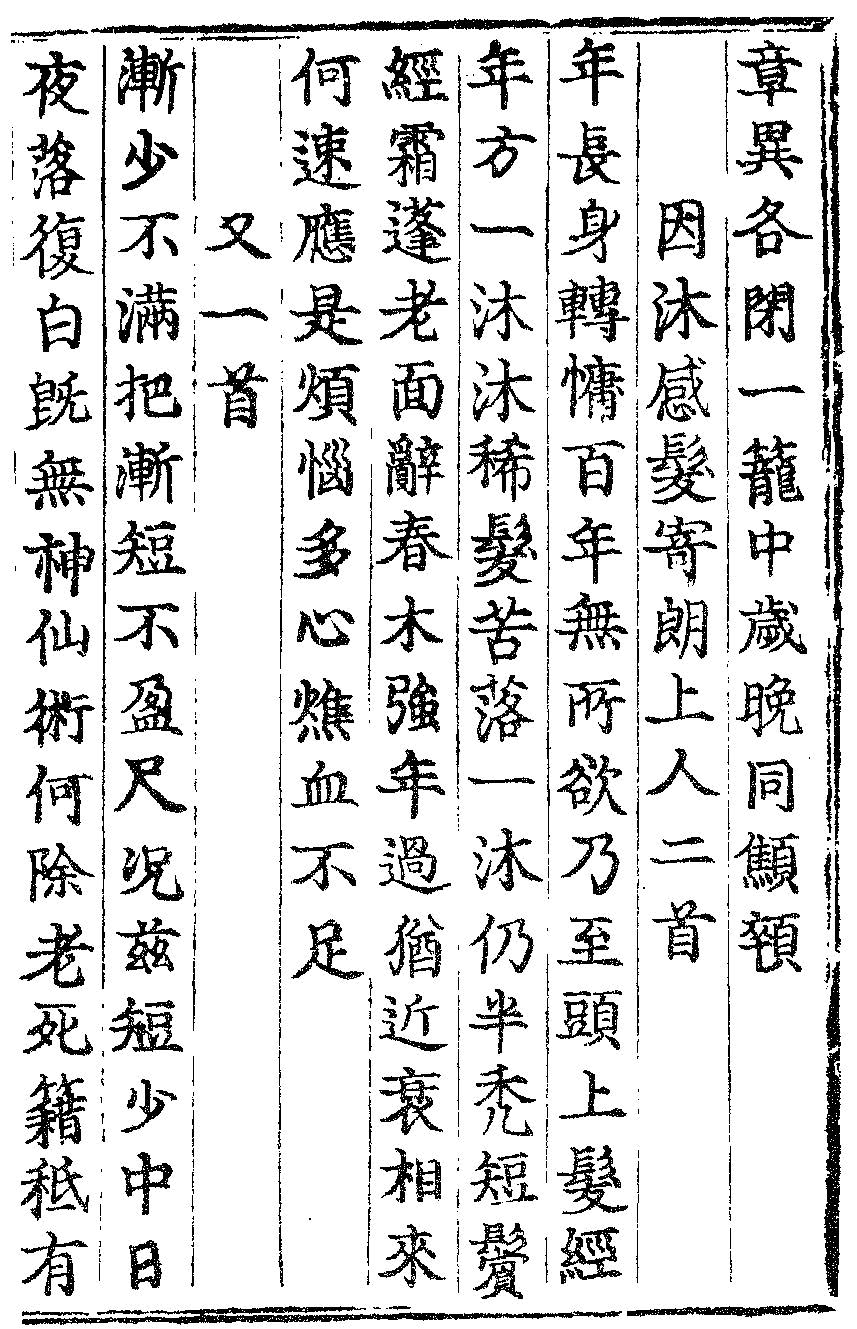 章異各閉一籠中歲晚同顦顇
因沐感髮寄朗上人二首
年長身轉慵百年無所欲乃至頭上髮經
年方一沐沐稀髮苦落一沐仍半禿短鬢
經霜蓬老面辭春木強年過猶近衰相來
何速應是煩惱多心燋血不足
又一首
漸少不滿把漸短不盈尺况茲短少中日
夜落復白旣無神仙術何除老死籍秖有